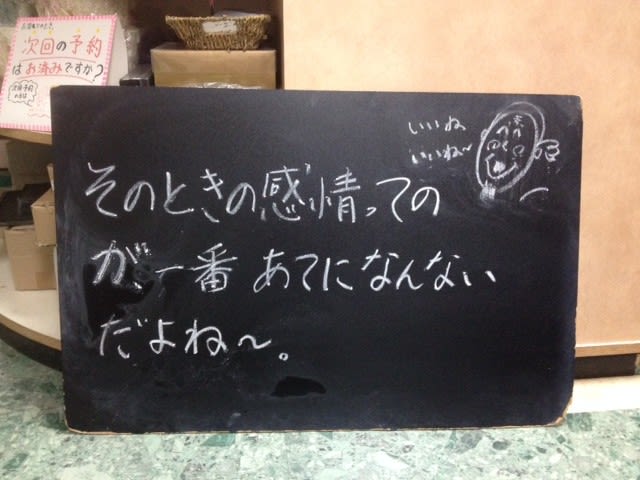 次回の予約
はお済みですか?
いいね
いいね~
そのときの感情っての
が一番あてになんない
だよね~。